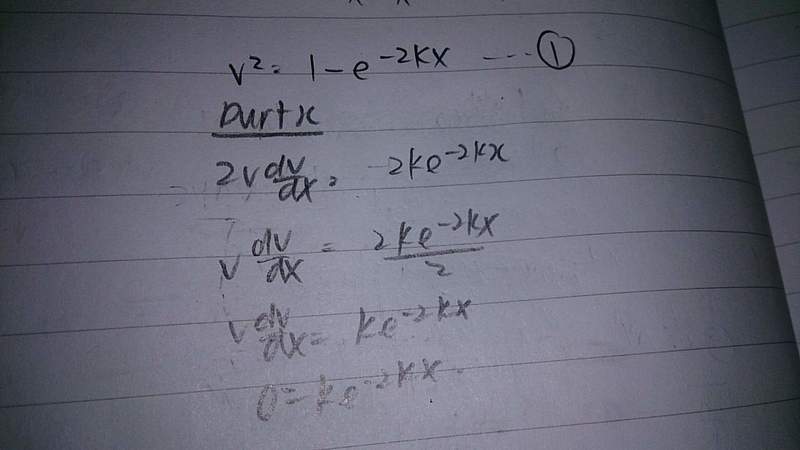 v² = 1 - e^{-2kx} ---- ①
Dwrtx
2v dv/dx = 2ke^{-2kx}
v dv/dx = 2ke^{-2kx}/2
v dv/dx = ke^{-2kx}
0 = ke^{-2kx}